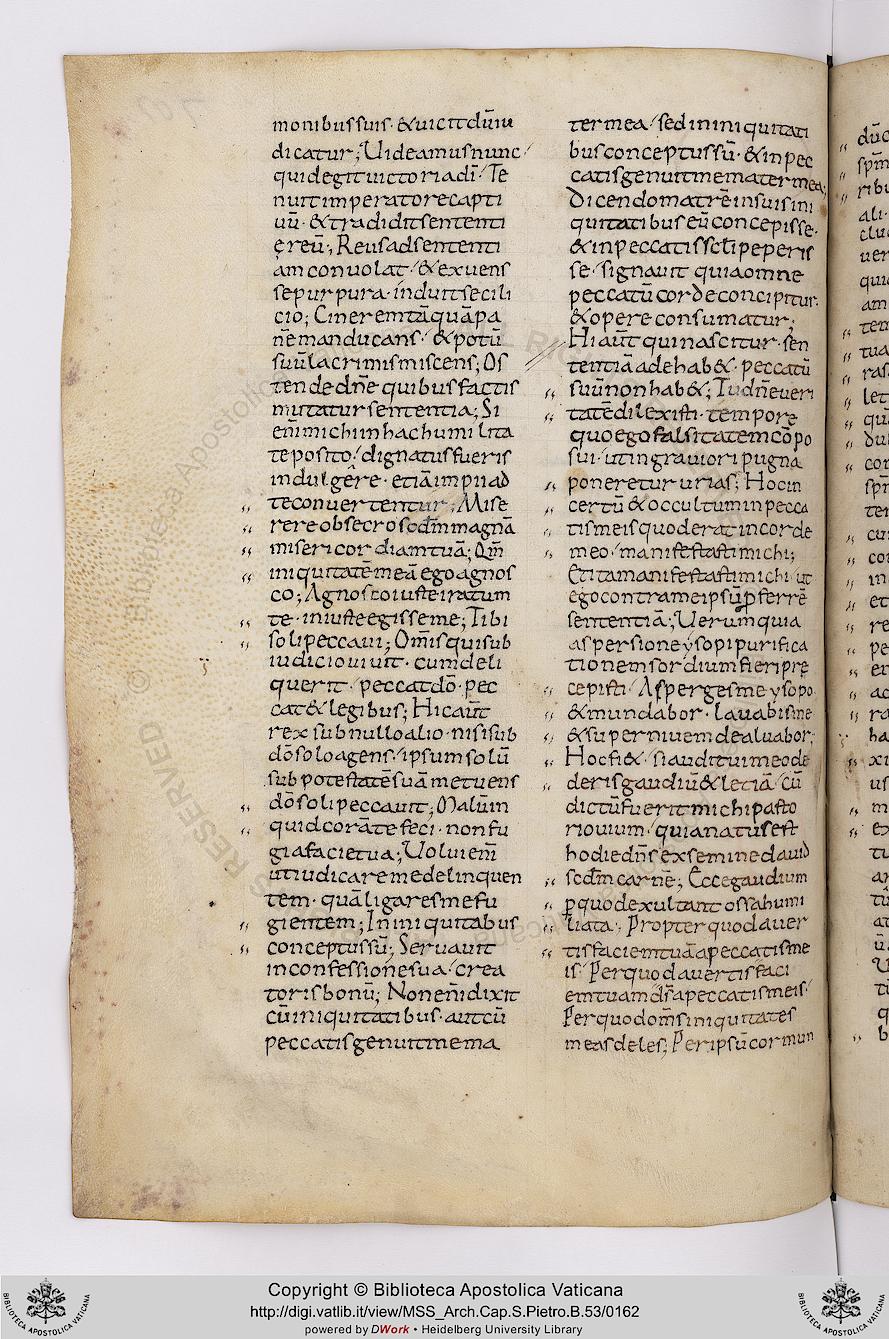 monibus suis · & uicit dũm iu
dicatur ; Uideamus nunc
qui degit uictoria dĩ · Te
nuit imperatorē capti
uũ · & tradidit sententi
ę reũ ; Reus ad sententi
am conuolat · & exuens
se purpura · induit se cili
cio ; Cinerem tãquã pa
nẽ manducans · & potũ
suũ lacrimis miscens ; Os
tende dñe quibus factis
mutatur sententia ; Si
enĩ michi in hac humilita
te posito / dignatus fueris
indulgêre · etiã impii ad
te conuertentur ; Mise
rere obsecro scdm̃ magnã
misericordiam tuã ; Qm̃
iniquitatẽ meã ego agnos
co ; Agnosco iuste iratum
te · iniuste egisse me ; Tibi
soli peccaui ; Om̃is qui sub
iudicio uiuit · cum deli
querit · peccat dõ · pec
cat & legibus ; Hic aũt
rex sub nullo alio · nisi sub
dõ solo agens · ipsum solũ
sub potestatẽ suã metuens
dõ soli peccauit ; Malũm
quid corã te feci · non fu
gi a facie tua ; Uolui em̃
ut iudicare me delinquen
tem · quã ligares me fu
gientem ; In iniquitabus
conceptus sũ ; Seruauit
in confessione sua / crea
toris bonũ ; Non eñi dixit
cũ iniquitatibus · aut cũ
peccatis genuit me ma
ter mea / sed in iniquitati
bus conceptus sũ · & in pec
catis genuit me mater mea ;
Dicendo matrẽ in suis ini
quitatibus eũ concepisse ·
& in peccatis sc̃li peperis
se · signauit quia omne
peccatũ corde concipitur ·
& opere consumatur ;
Hi aũt qui nascitur · sen
tentiã ade hab& · peccatũ
suũ non hab& ; Tu dñe ueri
tatẽ dilexisti · tempore
quo ego falsitatem cõpo
sui · ut in grauiori pugna
poneretur urias ; Hoc in
certũ & occultum in pecca
tis meis quod erat in corde
meo / manifestasti michi ;
Et ita manifestasti michi · ut
ego contra me ipsũ pferrẽ
sententiã ; Uerum quia
aspersione ysopi purifica
tionem sordium fieri prę
cepisti / Asperges me ysopo
& mundabor · lauabis me
& super niuem dealuabor ;
Hoc fi& / si auditui meo de
deris gaudiũ & letiã / cũ
dictũ fuerit michi pasto
ri ouium · quia natus est
hodie dñs ex semine dauid
scdm̃ carnẽ ; Ecce gaudium
p quod exultant ossa humi
liata · Propter quod auer
tis faciem tuã a peccatis me
is / Per quod auertis faci
em tuam dñs a peccatis meis ·
Per quod om̃s iniquitates
meas deles ; Per ipsũ cor mun
Copyright © Biblioteca Apostolica Vaticana
http://digi.vatlib.it/view/MSS_Arch.Cap.S.Pietro.B.53/0162
powered by DWork • Heidelberg University Library